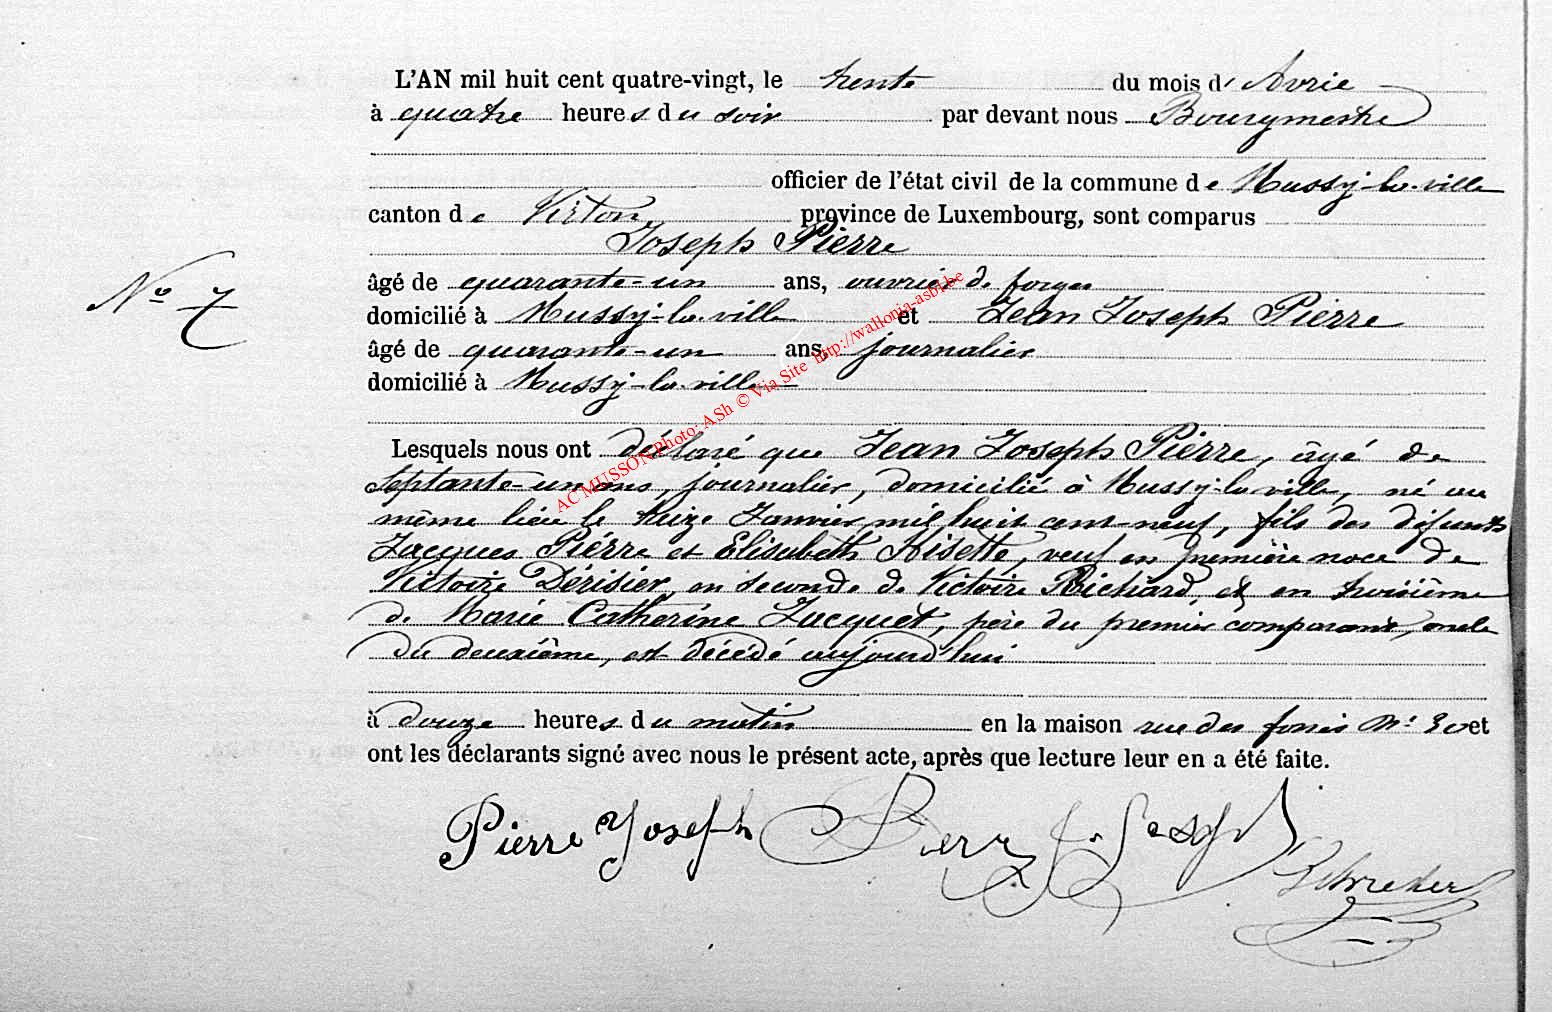 L'AN mil huit cent quatre-vingt, le trente du mois d' Avril
à quatre heures du soir par devant nous Bourgmestre
officier de l'état civil de la commune de Mussy-la-ville
canton de Virton, province de Luxembourg, sont comparus
Joseph Pierre
âgé de quarante-un ans, ouvrier de forges
N° 7
domicilié à Mussy-la-ville et Jean Joseph Pierre
âgé de quarante-un ans, journalier
domicilié à Mussy-la-ville
AC MUSSON Photo: ASh © Via Site http://wallonia-asbl.be
Lesquels nous ont déclaré que Jean Joseph Pierre, âgé de
septante-un ans, journalier, domicilié à Mussy-la-ville, né au
même lieu le treize Janvier mil huit cent-neuf, fils des défunts
Jacques Pierre et Elisabeth Hisette, veuf en première noce de
Victoire Dérisier, en seconde de Victoire Richard, et en troisième
de Marie Catherine Jacquet, père du premier comparant, oncle
du deuxième, est décédé aujourd'hui
à douze heures du matin en la maison rue des N° 30 et
ont les déclarants signé avec nous le présent acte, après que lecture leur en a été faite.
Pierre Joseph Pierre J. Joseph